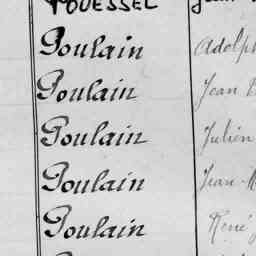 POUESSEL Jean
Poulain Adolph
Poulain Jean
Poulain Julien
Poulain Jean-M
Poulain René